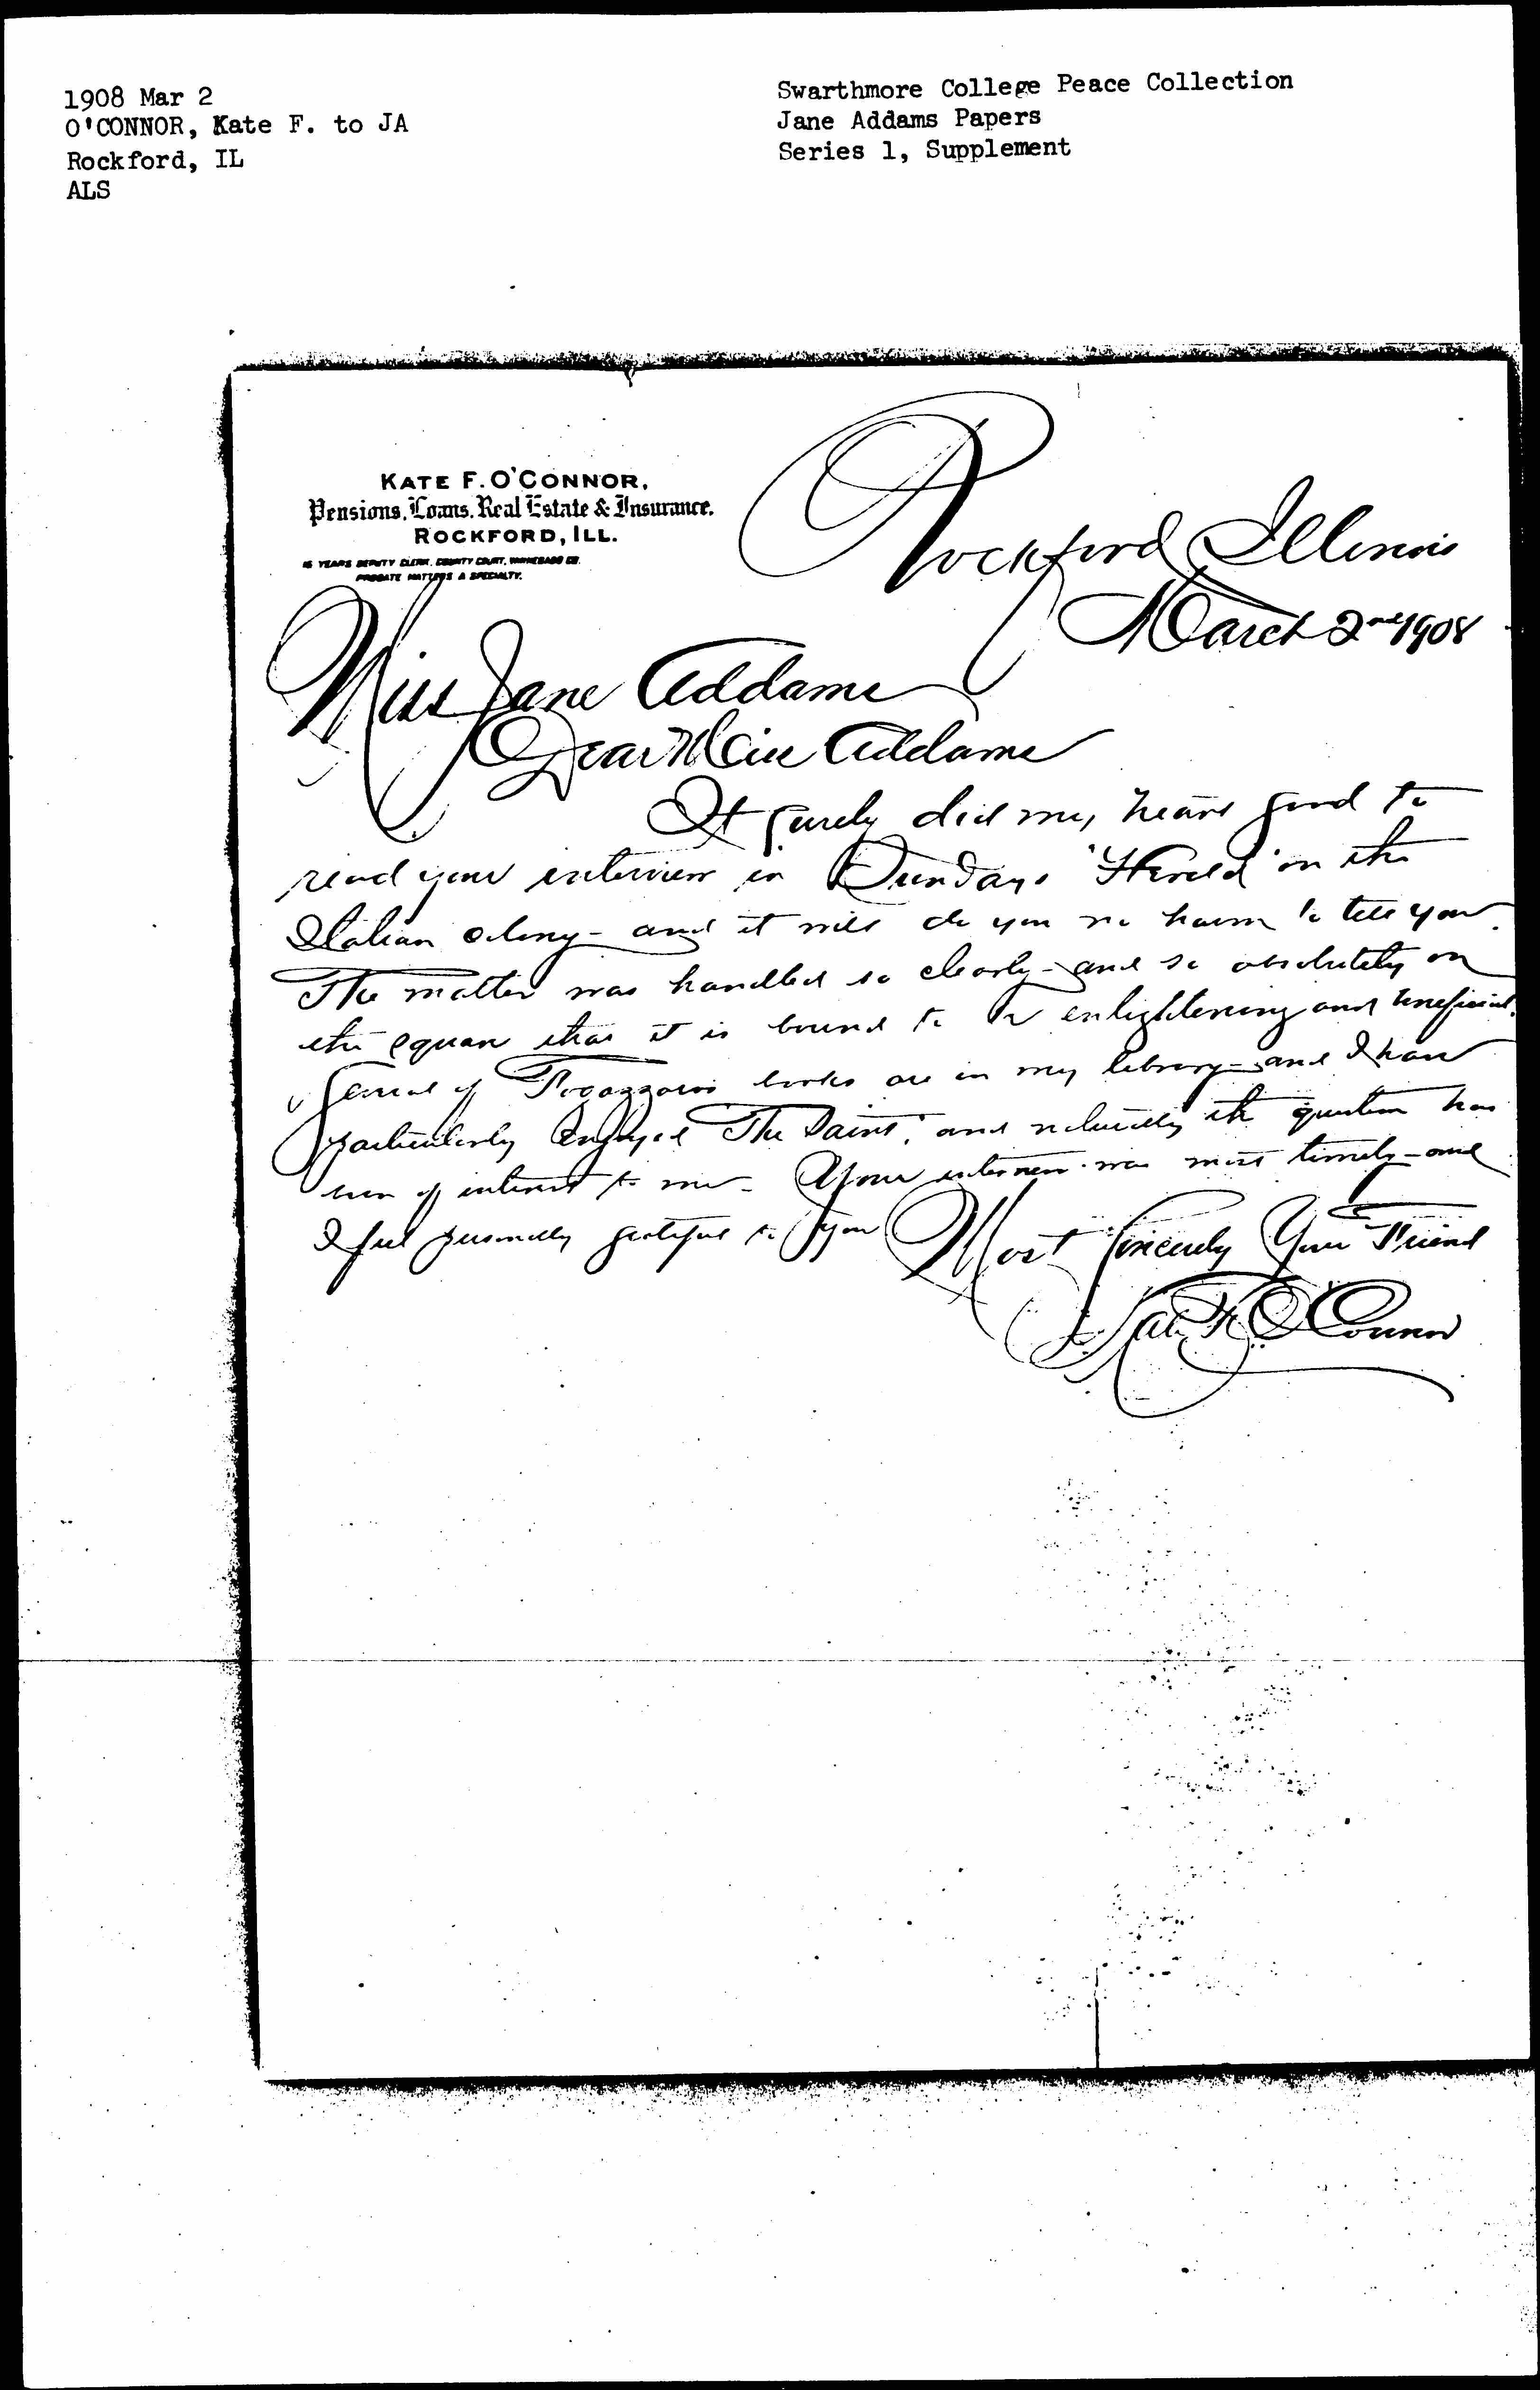 1908 Mar 2
O'CONNOR, Kate F. to JA
Rockford, IL
ALS
Swarthmore College Peace Collection
Jane Addams Papers
Series 1, Supplement
KATE F. O'CONNOR,
Pensions, Loans, Real Estate & Insurance.
ROCKFORD, ILL.
15 YEARS DEPUTY CLERK, COUNTY COURT, WINNEBAGO CO.
PROBATE MATTERS A SPECIALTY.
Rockford Illinois
March 2nd 1908
Miss Jane Addams
Dear Miss Addams
It surely did my heart good to
read your interview in Sundays "Herald" on the
Italian colony - and it will do you no harm to tell you.
The matter was handled so clearly - and so absolutely on
the square that it is bound to be enlightening and beneficial.
Several of Fogazzaros books are in my library - and I have
particularly enjoyed "The Saint", and naturally the question has
been of interest to me - Your interview was most timely - and
I feel personally grateful to you
Most Sincerely Your Friend
Kate F. O'Connor